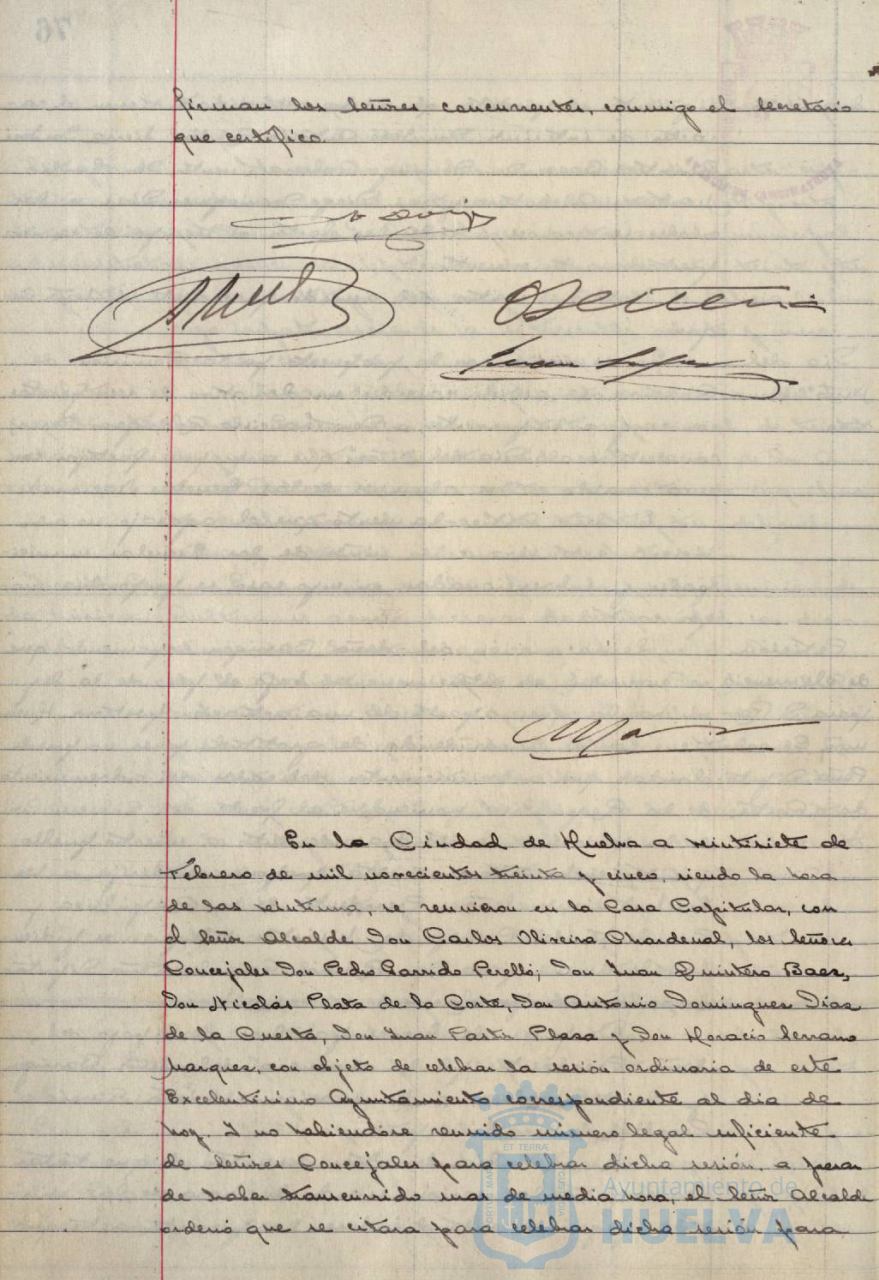 firman los señores concurrentes, conmigo el secretario
que certifico.
En la Ciudad de Huelva a veintisiete de
Febrero de mil novecientos treinta y cinco, siendo la hora
de las veintiuna, se reunieron en la Casa Capitular, con
el Señor Alcalde Don Carlos Oliveira Chardenal, los Señores
Concejales Don Pedro Garrido Perelló, Don Juan Quintero Baez,
Don Nicolás Plata de la Corte, Don Antonio Domínguez Días
de la Cuesta, Don Juan Plaza y Don Horacio Serrano
Marquez, con objeto de celebrar la sesión ordinaria de este
Excelentísimo Ayuntamiento correspondiente al día de
hoy. Y no habiendose reunido número legal suficiente
de Señores Concejales para celebrar dicha sesión, a pesar
de haber transcurrido mas de media hora, el Señor Alcalde
ordenó que se citara para celebrar dicha sesión para
Ayuntamiento de
HUELVA